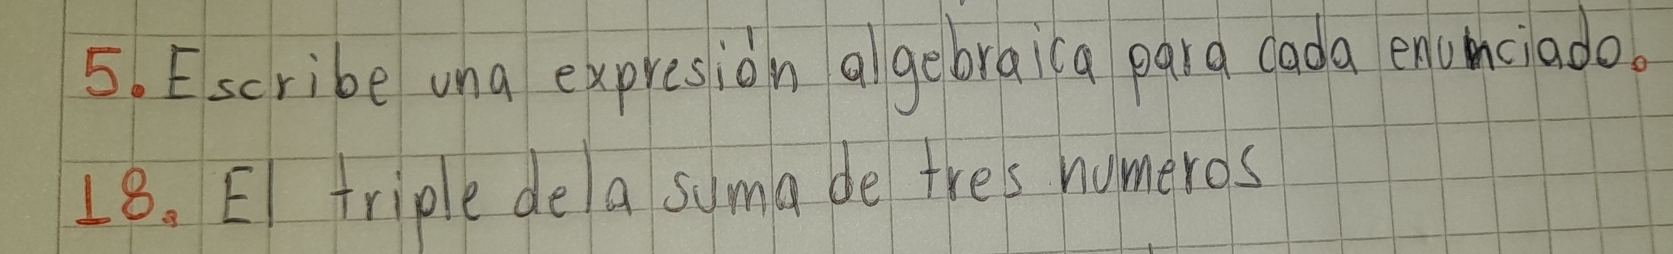 5. Escribe una expresión algebraica para cada enunciado.
18. El triple de la suma de tres numeros